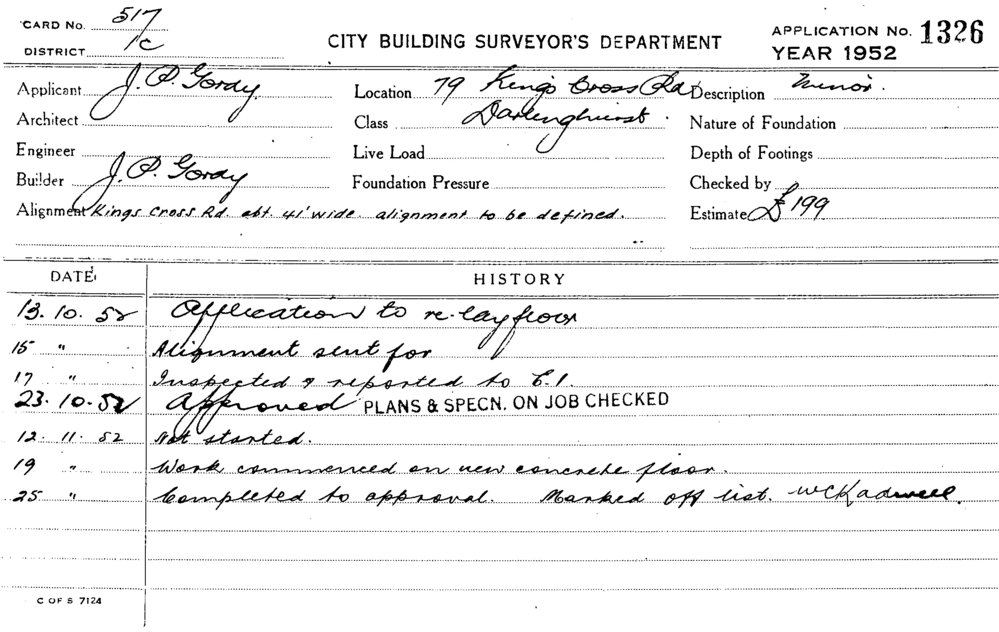 CARD No. 517
DISTRICT 1C
CITY BUILDING SURVEYOR'S DEPARTMENT
APPLICATION No. 1326
YEAR 1952
Applicant J. P. Gordy
Location 79 Kings Cross Rd
Darlinghurst.
Description Minor.
Architect
Class
Nature of Foundation
Engineer
Live Load
Depth of Footings
Builder J. P. Gordy
Foundation Pressure
Checked by
Alignment Kings Cross Rd. abt. 41' wide alignment to be defined.
Estimate £199
DATE HISTORY
13.10.52 Application to re-lay floor
15 " Alignment sent for
17 " Inspected & reported to C.I.
23.10.52 Approved PLANS & SPECN. ON JOB CHECKED
12.11.52 Not started.
19 " Work commenced on new concrete floor.
25 " Completed to approval. Marked off list.
C OF S 7124